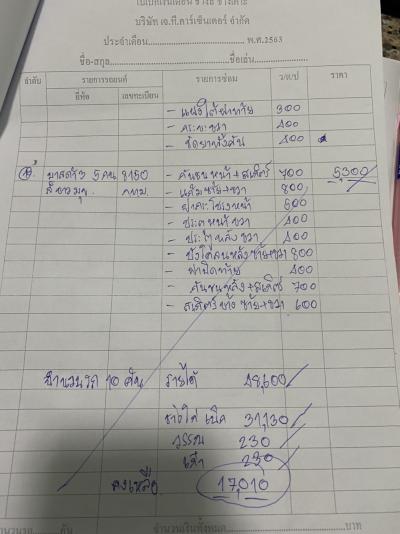 ใบเบิกเงินเดือน ช่างเคาะ
บริษัท เจ.ที.คาร์เซ็นเตอร์ จำกัด
ประจำเดือน พ.ศ.2563
ชื่อ-สกุล ชื่อเล่น
ลำดับ รายการรถยนต์ รายการซ่อม ว/ด/ป ราคา
ยี่ห้อ เลขทะเบียน
- ใต้ฝาท้าย 300
- 400
- ทั้งคัน 400
มาสด้า 5 8150 - กันชนหน้า+สเกิร์ต 700 5,300
สีขาวมุข กทม. - แก้มซ้าย+ขวา 800
- ฝากระโปรงหน้า 500
- ประตูหน้าขวา 400
- ประตูหลังขวา 400
- บังโคลนหลังซ้าย+ขวา 800
- ฝาปิดท้าย 400
- กันชนหลัง+สเกิร์ต 700
- สเกิร์ตข้างซ้าย+ขวา 600
จำนวนรถ 10 คัน รายได้ 48,600
31,130
วรรณ 230
230
คงเหลือ 17,010
จำนวนรถ คัน จำนวนเงินทั้งหมด บาท